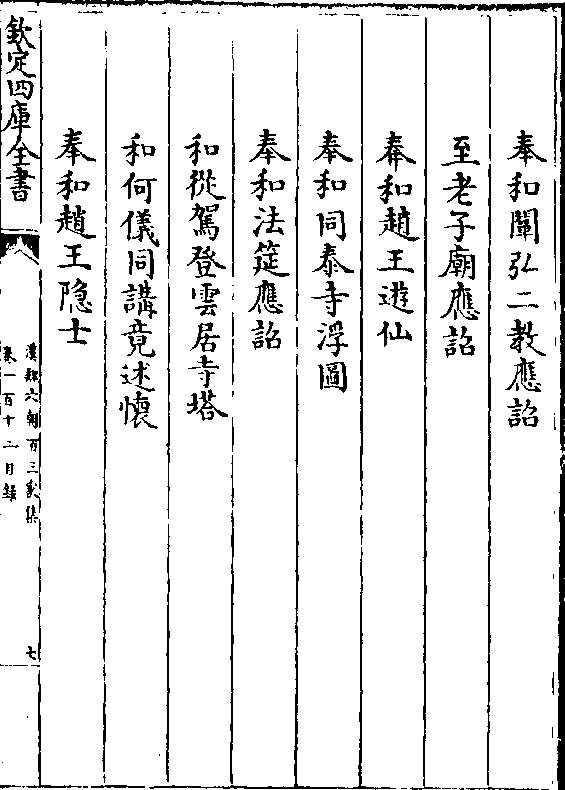 奉和闡弘二教應詔
至老子廟應詔
奉和趙王遊仙
奉和同泰寺浮圖
奉和法筵應詔
和從駕登雲居寺塔
和何儀同講竟述懷
奉和趙王隐士
欽定四庫全書
漢魏六朝百三家集
卷一百十二目錄
七